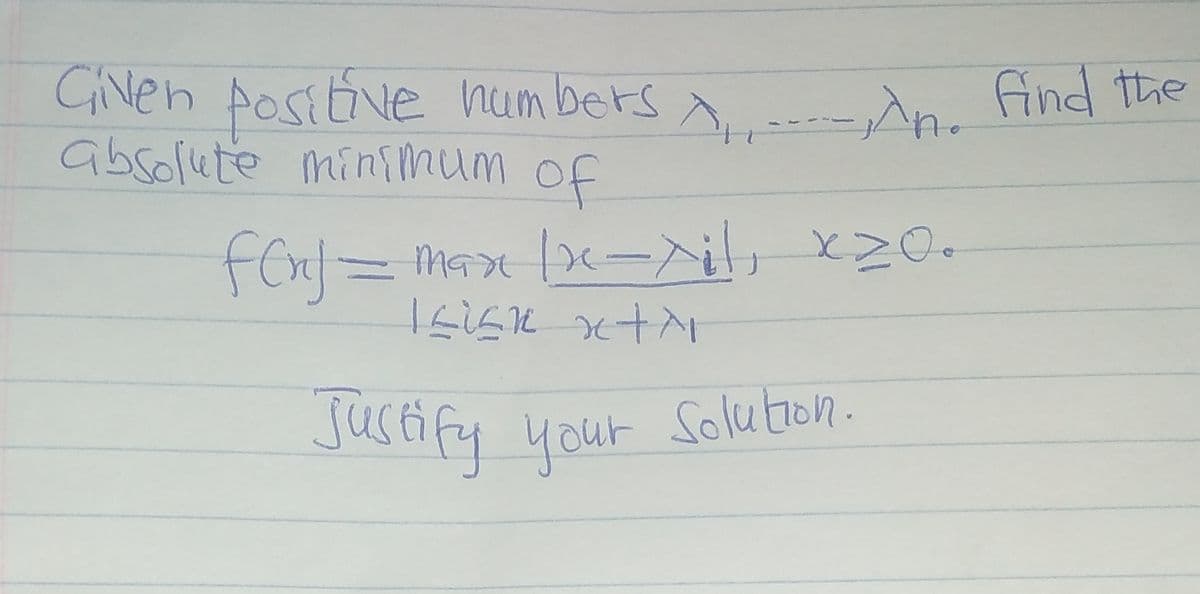 Given positive numbers λ₁, ----, λn. find the
absolute minimum of
f(x) = max |x-λi|, x≥0.
1≤i≤n x+λ1
Justify your solution.